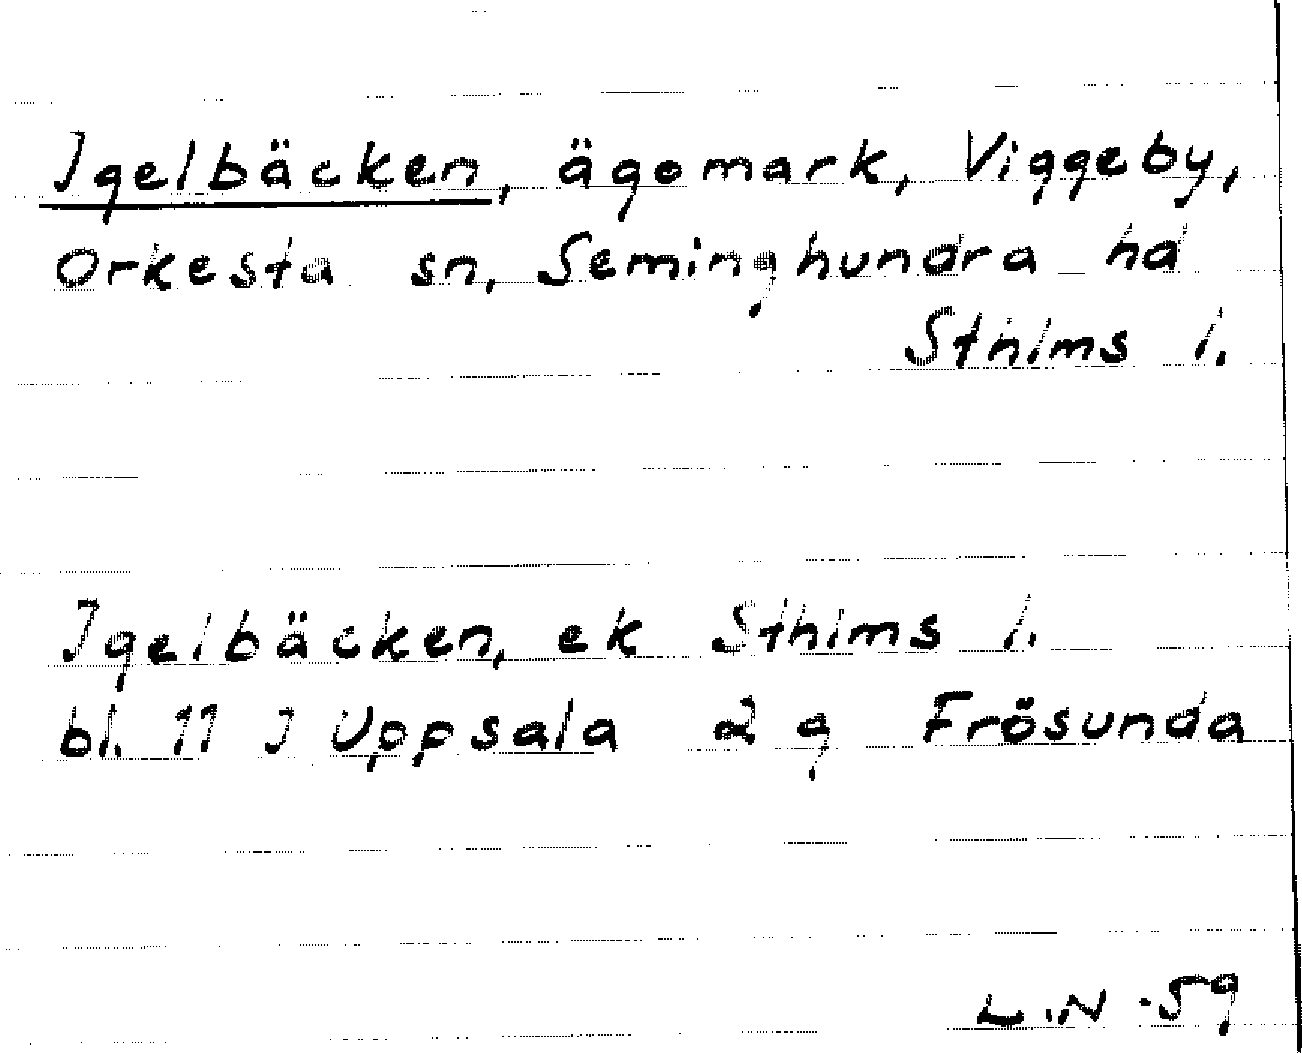 Igelbäcken, ägomark, Viggeby,
Orkesta sn, Seminghundra hd
Sthlms l.
Igelbäcken, ek Sthlms l.
bl. 11 I Uppsala 2 g Frösunda
L.N -59